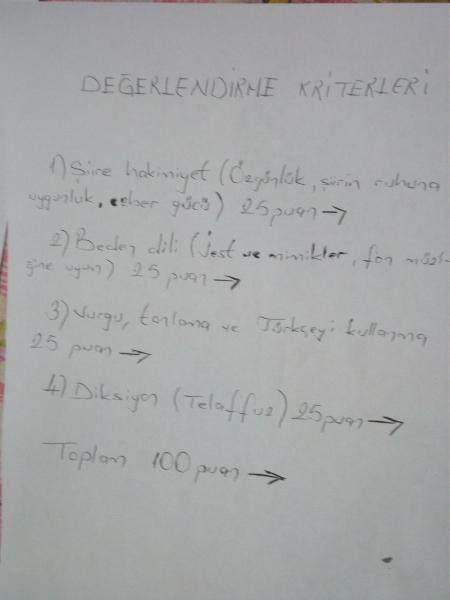 DEĞERLENDİRME KRİTERLERİ
1) Şiire hakimiyet (Özgünlük, şiirin ruhuna
uygunluk, ezber gücü) 25 puan →
2) Beden dili (Jest ve mimikler, fon müzi-
ğine uyum) 25 puan →
3) Vurgu, tonlama ve Türkçeyi kullanma
25 puan →
4) Diksiyon (Telaffuz) 25 puan →
Toplam 100 puan →